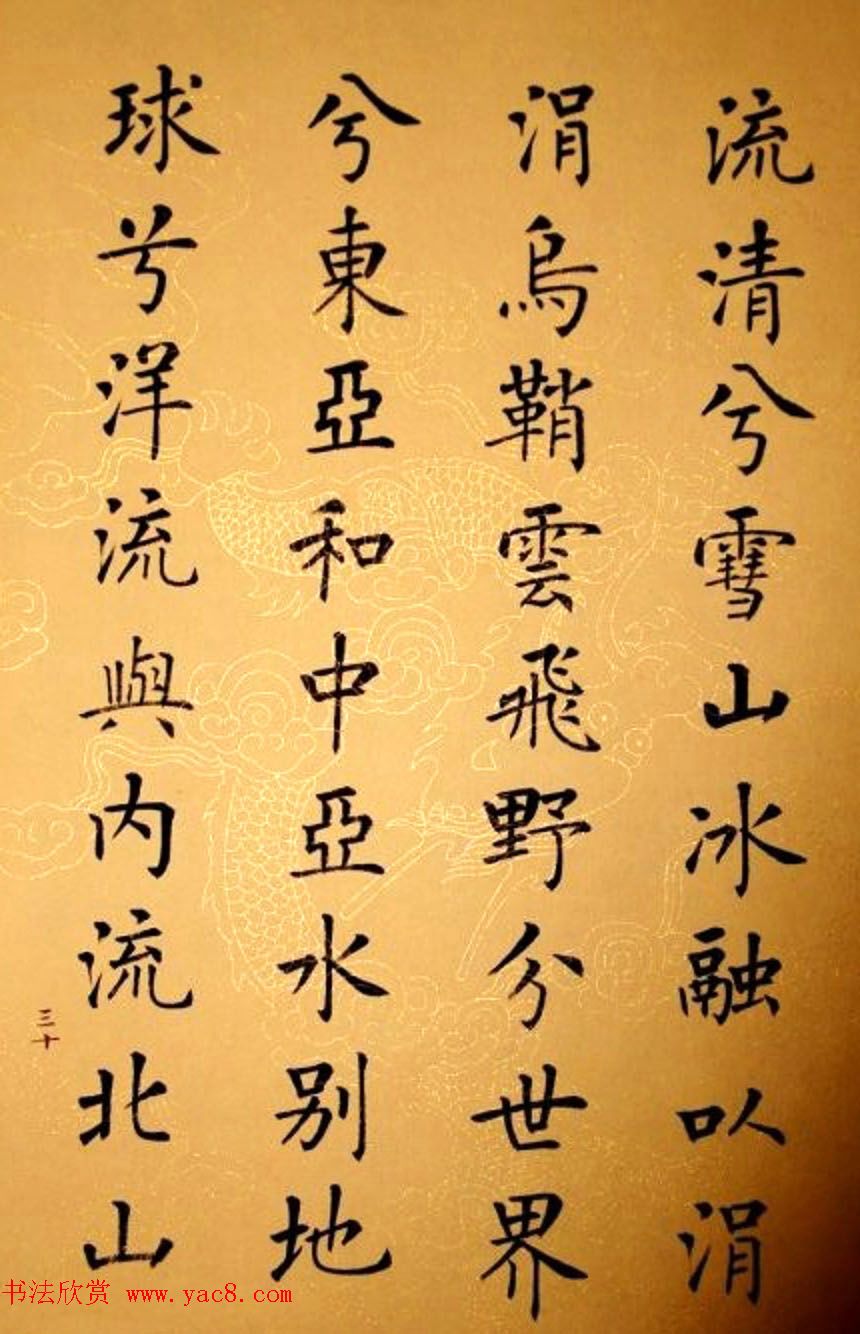 流清兮雪山冰融以涓
涓烏鞘雲飛野分世界
兮東亞和中亞水别地
球兮洋流與内流北山
三十
书法欣赏 www.yac8.com